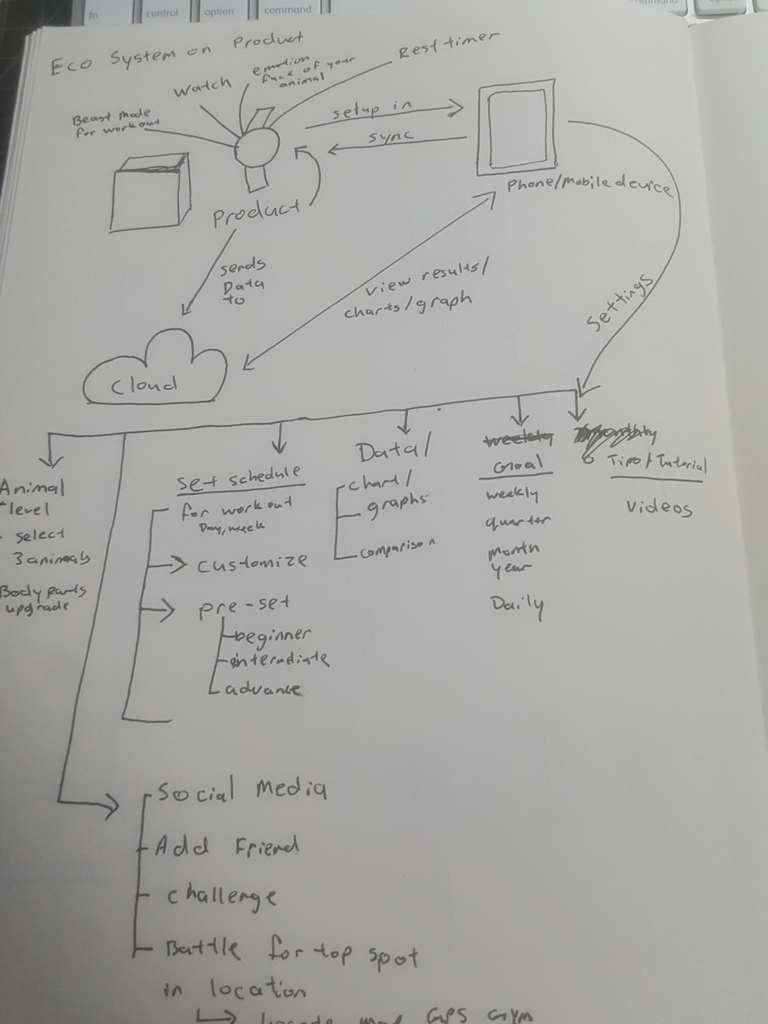 fn
control
option
command
Eco System on Product
Watch
emotion
face of your
animal
Rest timer
Beast Mode
for workout
setup in
sync
Product
Phone/mobile device
sends
Data
to
view results/
charts/graph
settings
Cloud
Animal
level
- select
3 animals
Body parts
upgrade
Set schedule
for workout
Day, week
customize
pre-set
beginner
intermdiate
advance
Data/
chart/
graphs
comparison
weekly
Goal
weekly
quarter
month
year
Daily
monthly
Tips/Tutorial
videos
Social Media
Add Friend
challenge
Battle for top spot
in location
map GPS Gym